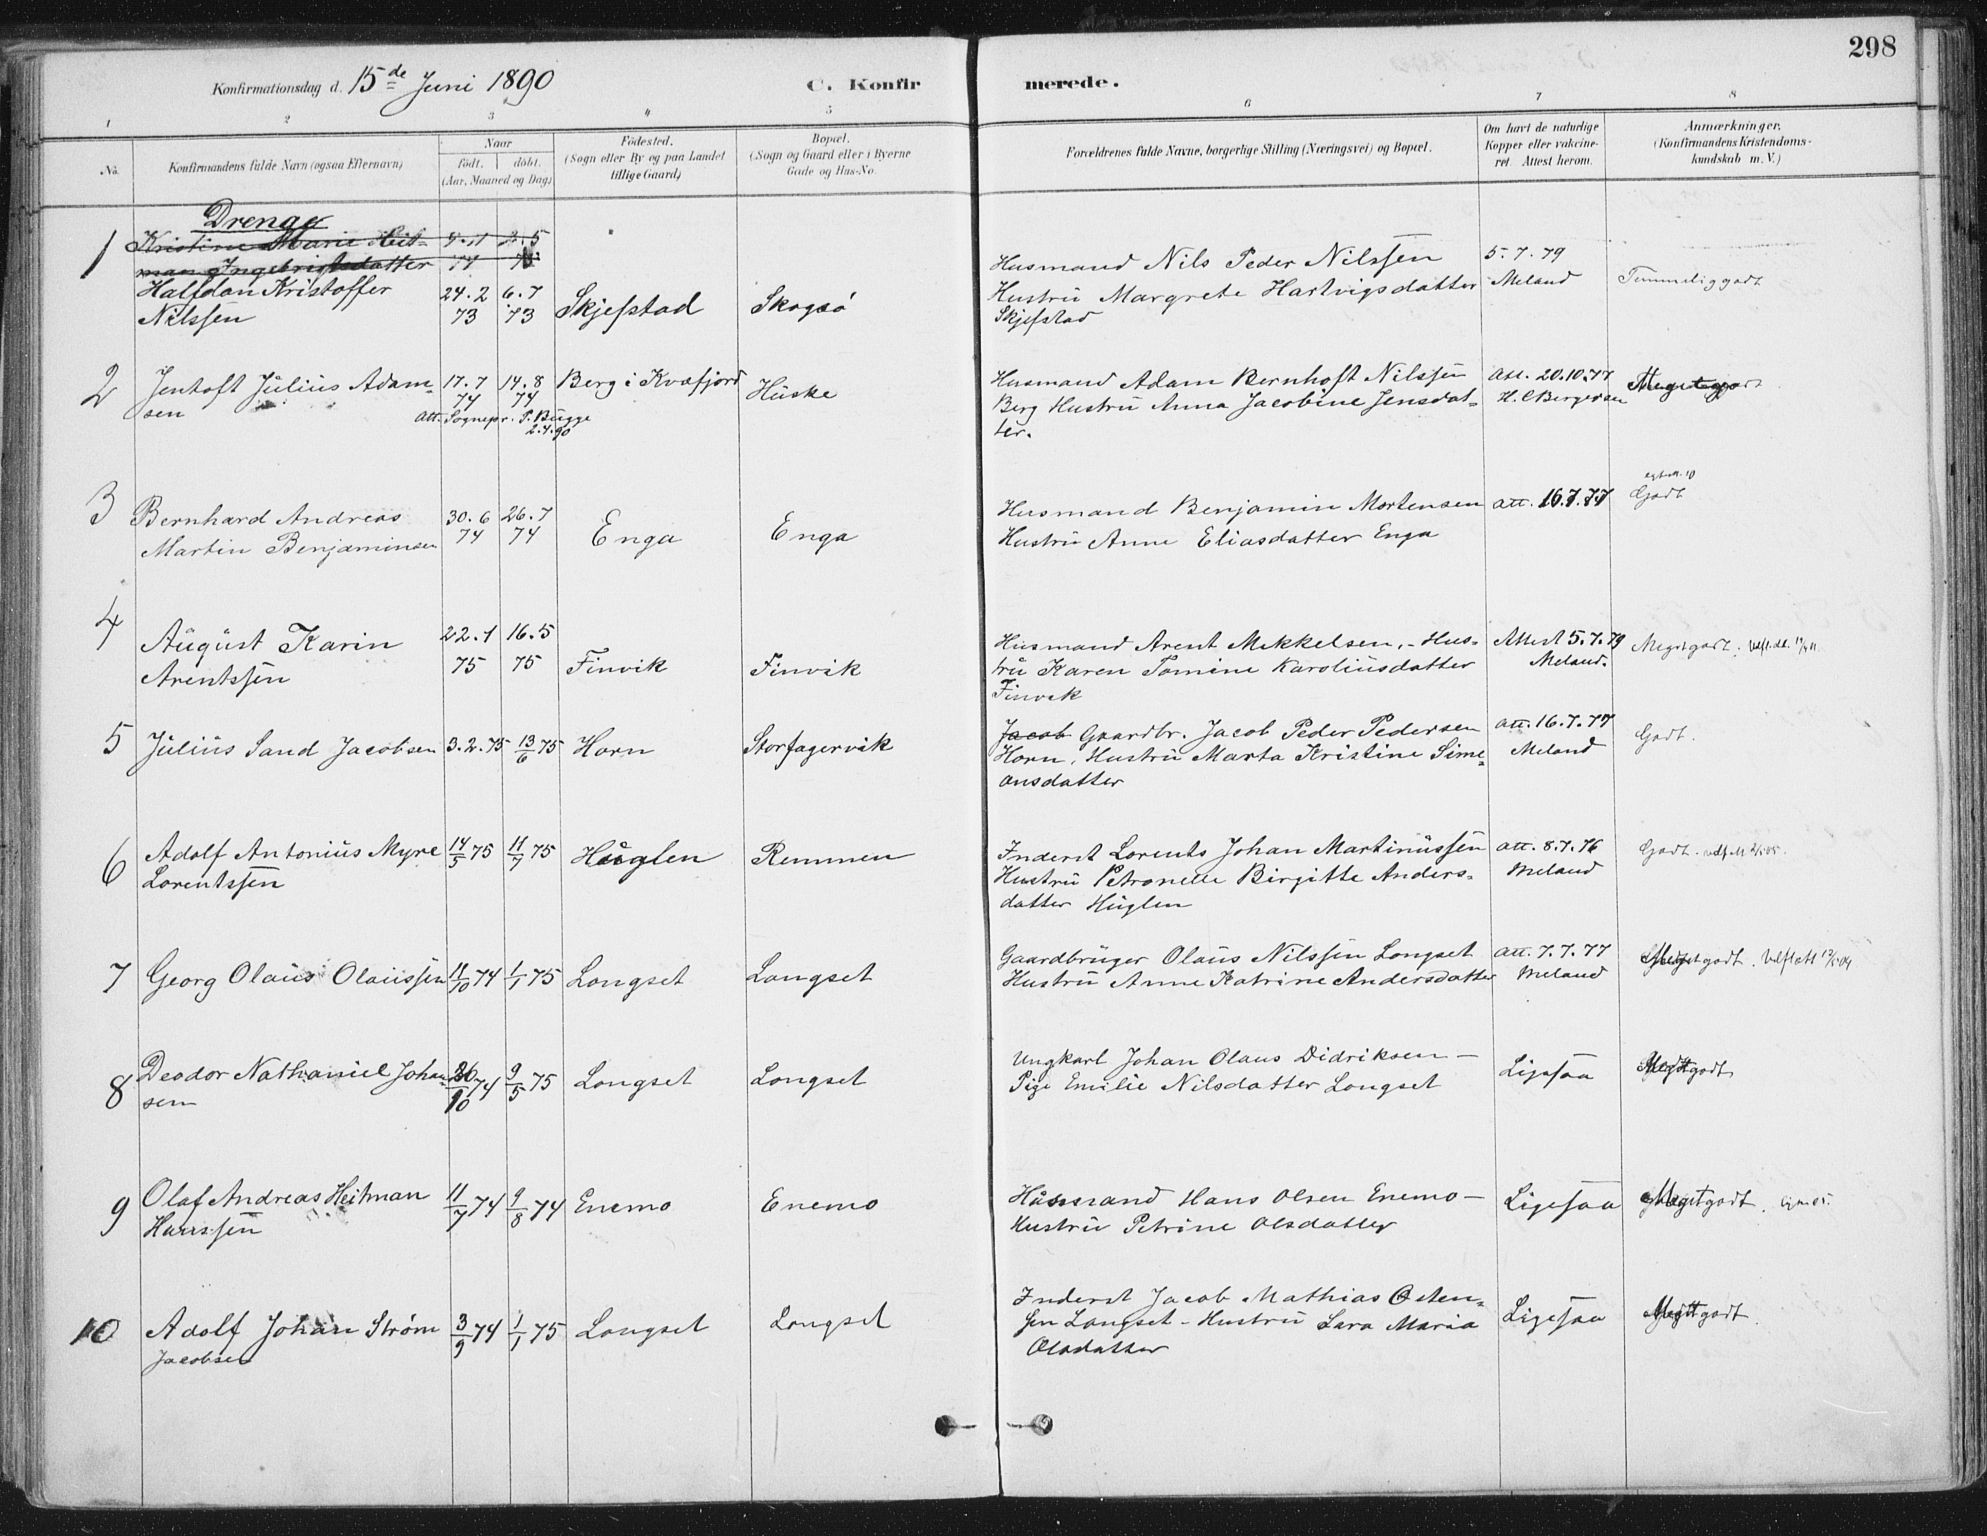 298
Konfirmationsdag d. 15de Juni 1890 C. Konfirmerede.
1 2 3 4 5 6 7 8
No. Konfirmandens fulde Navn (ogsaa Efternavn) Naar født. døbt. (Aar, Maaned og Dag) Fødested. (Sogn eller By og paa Landet tillige Gaard) Bopæl. (Sogn og Gaard eller i Byerne Gade og Hus-No. Forældrenes fulde Navne, borgerlige Stilling (Næringsvei) og Bopæl. Om havt de naturlige Kopper eller vakcineret. Attest herom. Anmærkninger. (Konfirmandens Kristendomskundskab m. V.)
Drenge
1 Kristine Marie Heit=
man Ingebrigtsdatter
Halfdan Kristoffer 24.2 6.7 Skjefstad Skogsö Husmand Nils Peder Nilssen 5.7.79
Nilssen 73 73 Hustru Margrete Hartvigsdatter Meland Temmelig godt
Skjefstad
2 Jentoft Julius Adam= 17.7 14.8 Berg i Kvæfjord Huske Husmand Adam Bernhoft Nilssen Att. 20.10.77
sen 74 74 Berg Hustru Anna Jacobine Jensdat= H. C Bergersen
att. Sognepr. P. Bugge ter.
2.4.90
3 Bernhard Andreas 30.6 26.7 Enga Enga Husmand Benjamin Mortensen att. 16.7.77 Godt
Martin Benjaminsen 74 74 Hustru Anne Eliasdatter Enga
4 August Karin 22.1 16.5 Finvik Finvik Husmand Arent Mikkelsen, - Hus= Attest 5.7.79 Meget godt.
Arentssen 75 75 tru Karen Tomine Karoliusdatter Meland.
Finvik
5 Julius Sand Jacobsen 3.2.75 13/6 75 Horn Storfagervik Jacob Gaardbr. Jacob Peder Pedersen att. 16.7.77 Godt.
Horn, Hustru Marta Kristine Sime= Meland
onsdatter
6 Adolf Antonius Myre 14/5 75 11/7 75 Huglen Remmen Inderst Lorents Johan Martinussen att. 8.7.76 Godt.
Lorentssen Hustru Petronelle Birgitte Anders= Meland
datter Huglen
7 Georg Olaus Olaussen 11/10 74 1/1 75 Longset Longset Gaardbruger Olaus Nilssen Longset att. 7.7.77 Meget godt.
Hustru Anne Katrine Andersdatter Meland
8 Deodor Nathaniel Johan 74 9/5 75 Longset Longset Ungkarl Johan Olaus Didriksen - Ligesaa godt
sen Pige Emilie Nilsdatter Longset
9 Olaf Andreas Heitman 11/7 74 9/8 74 Enemo Enemo Husmand Hans Olsen Enemo - Ligesaa Meget godt.
Hanssen Hustru Petrine Olsdatter
10 Adolf Johan Strøm 3/9 74 1/1 75 Longset Longset Inderst Jacob Mathias Osten= Ligesaa godt.
Jacobsen sen Longset - Hustru Sara Maria
Olsdatter